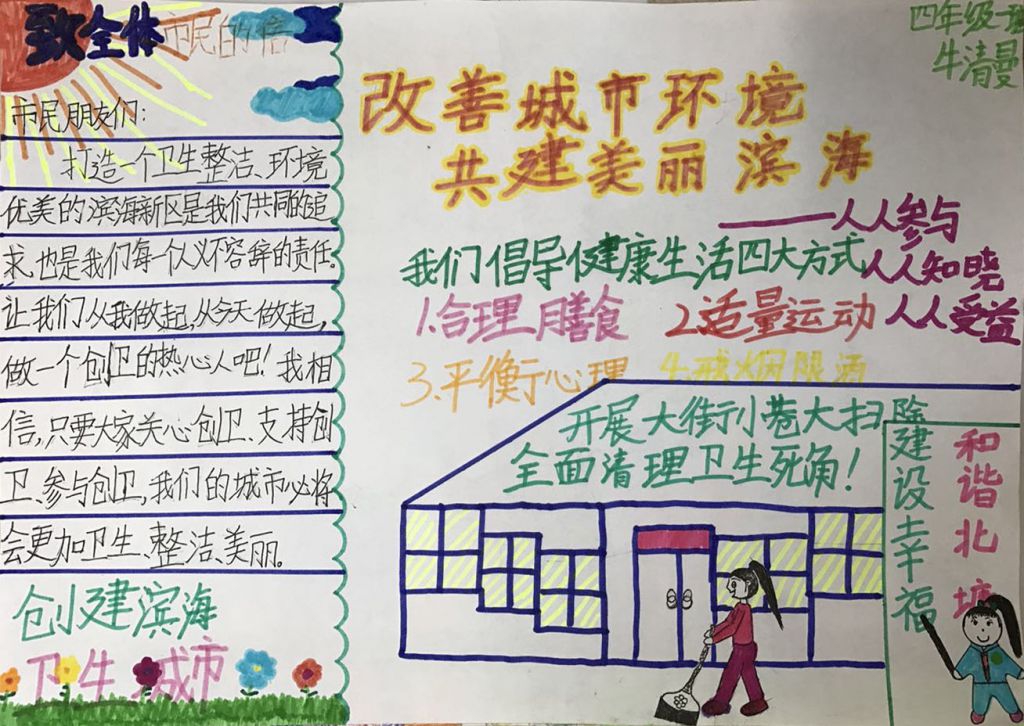 致全体市民的信
市民朋友们:
打造一个卫生整洁、环境
优美的滨海新区是我们共同的追
求,也是我们每一个人义不容辞的责任。
让我们从我做起,从今天做起,
做一个创卫的热心人吧!我相
信,只要大家关心创卫、支持创
卫、参与创卫,我们的城市必将
会更加卫生、整洁、美丽。
创建滨海
卫生城市
四年级一班
牛清曼
改善城市环境
共建美丽滨海
——人人参与
人人知晓
人人受益
我们倡导健康生活四大方式
1.合理膳食
2.适量运动
3.平衡心理
4.戒烟限酒
开展大街小巷大扫除
全面清理卫生死角!
建设幸福
和谐北塘